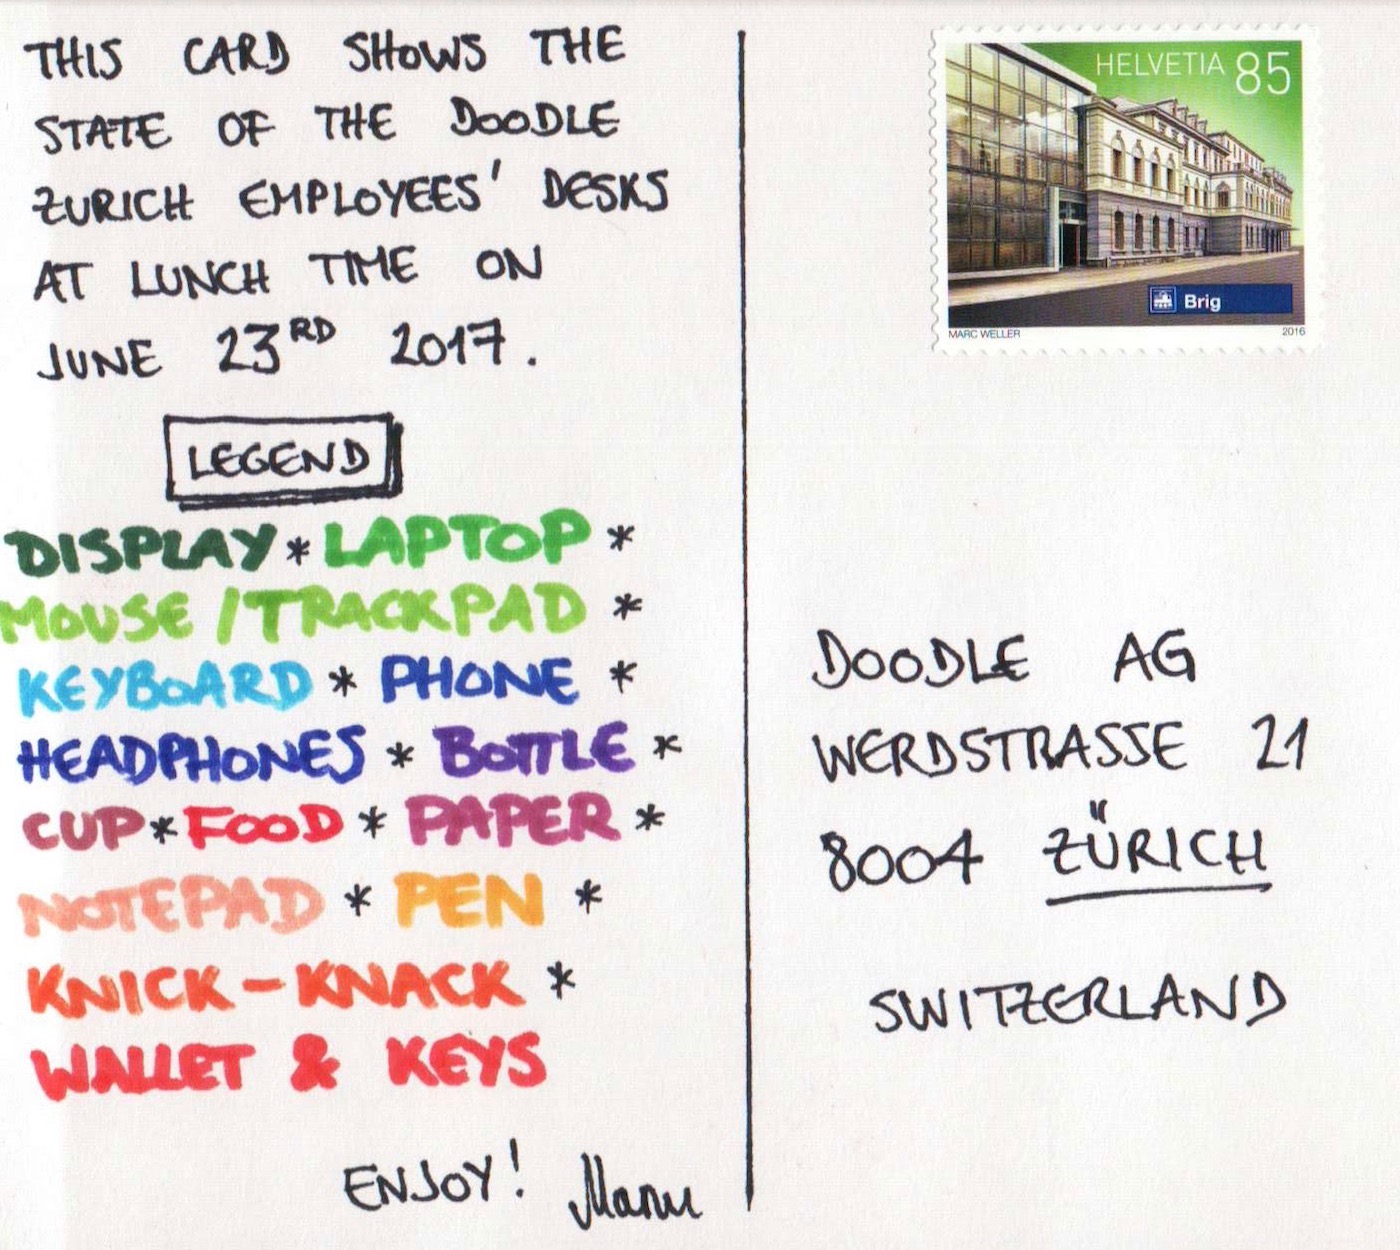 THIS CARD SHOWS THE
STATE OF THE DOODLE
ZURICH EMPLOYEES' DESKS
AT LUNCH TIME ON
JUNE 23RD 2017.
LEGEND
DISPLAY * LAPTOP *
MOUSE / TRACKPAD *
KEYBOARD * PHONE *
HEADPHONES * BOTTLE *
CUP * FOOD * PAPER *
NOTEPAD * PEN *
KNICK-KNACK *
WALLET & KEYS
ENJOY! Manu
HELVETIA 85
Brig
MARC WELLER 2016
DOODLE AG
WERDSTRASSE 21
8004 ZÜRICH
SWITZERLAND